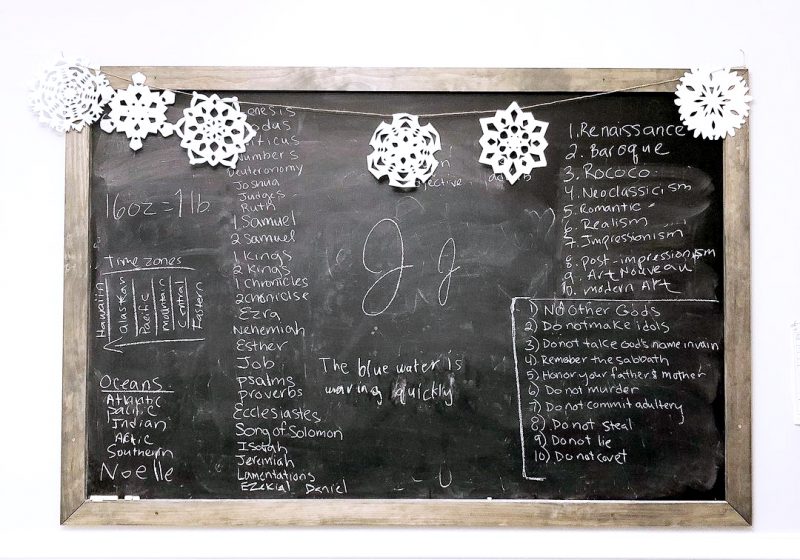 16oz=1lb.
Time zones
Hawaiin
alaskan
Pacific
mountain
Central
Eastern
Oceans
Atlantic
pacific
Indian
Artic
Southern
Noelle
enesis
odus
iticus
Numbers
Deuteronomy
Joshua
Judges
Ruth
1 Samuel
2 Samuel
1 Kings
2 Kings
1 chronicles
2 chronicise
Ezra
Nehemiah
Esther
Job
psalms
proverbs
Ecclesiastes
Song of Solomon
Isaiah
Jeremiah
Lamentations
Ezekial Daniel
jective
J j
The blue water is
waving quickly
1. Renaissance
2. Baroque
3. Rococo
4. Neoclassicism
5. Romantic
6. Realism
7. Impressionism
8. post-impressionism
9. Art Nouveau
10. modern Art
1) No Other Gods
2) Do not make idols
3) Do not take God's name in vain
4) Remember the sabbath
5) Honor your father & mother
6) Do not murder
7) Do not commit adultery
8) Do not steal
9) Do not lie
10) Do not covet